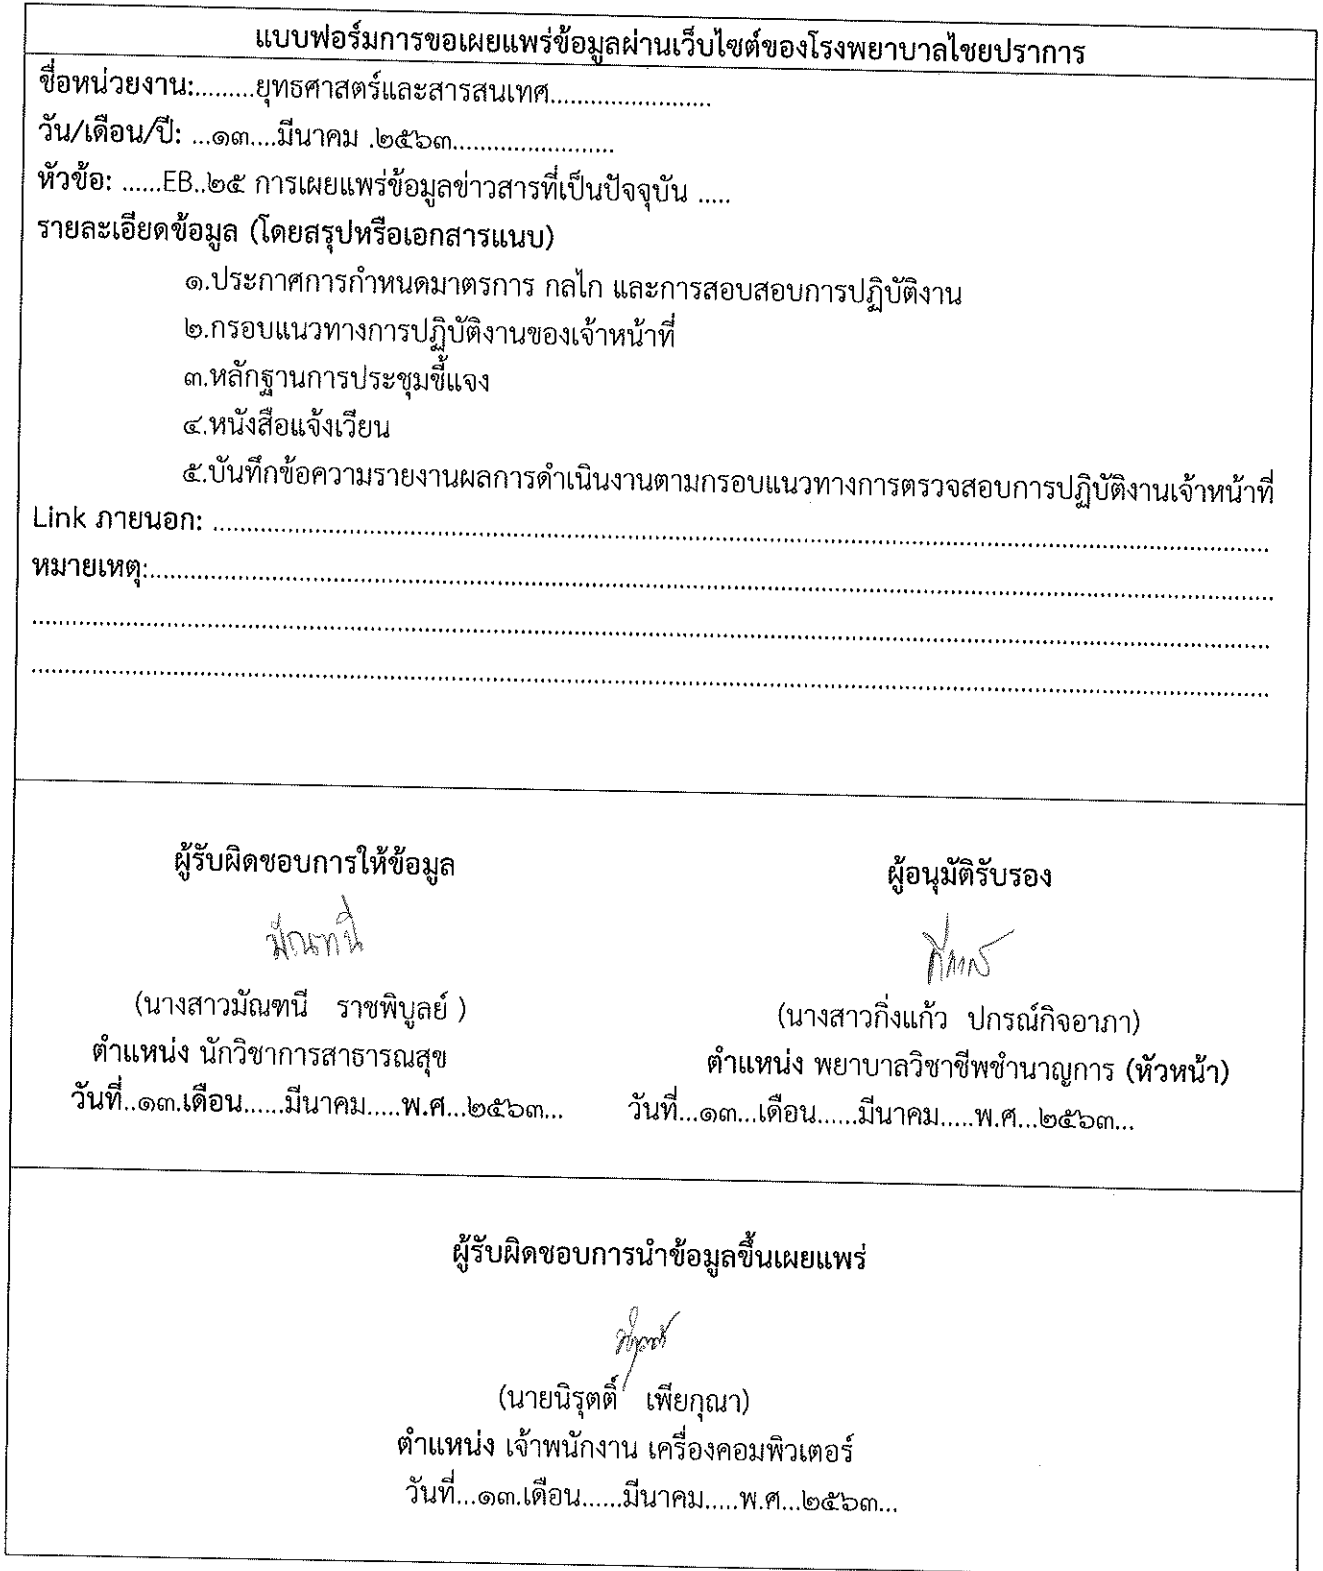 แบบฟอร์มการขอเผยแพร่ข้อมูลผ่านเว็บไซต์ของโรงพยาบาลไชยปราการ
ชื่อหน่วยงาน:.........ยุทธศาสตร์และสารสนเทศ........................
วัน/เดือน/ปี: ...๑๓....มีนาคม .๒๕๖๓........................
หัวข้อ: ......EB..๒๕ การเผยแพร่ข้อมูลข่าวสารที่เป็นปัจจุบัน .....
รายละเอียดข้อมูล (โดยสรุปหรือเอกสารแนบ)
๑.ประกาศการกำหนดมาตรการ กลไก และการสอบสอบการปฏิบัติงาน
๒.กรอบแนวทางการปฏิบัติงานของเจ้าหน้าที่
๓.หลักฐานการประชุมชี้แจง
๔.หนังสือแจ้งเวียน
๕.บันทึกข้อความรายงานผลการดำเนินงานตามกรอบแนวทางการตรวจสอบการปฏิบัติงานเจ้าหน้าที่
Link ภายนอก: ........................................................................
หมายเหตุ:........................................................................
ผู้รับผิดชอบการให้ข้อมูล ผู้อนุมัติรับรอง
มัณฑนี
(นางสาวมัณฑนี ราชพิบูลย์ ) (นางสาวกิ่งแก้ว ปกรณ์กิจอาภา)
ตำแหน่ง นักวิชาการสาธารณสุข ตำแหน่ง พยาบาลวิชาชีพชำนาญการ (หัวหน้า)
วันที่..๑๓.เดือน......มีนาคม.....พ.ศ...๒๕๖๓... วันที่...๑๓...เดือน......มีนาคม.....พ.ศ...๒๕๖๓...
ผู้รับผิดชอบการนำข้อมูลขึ้นเผยแพร่
(นายนิรุตติ์ เพียกุณา)
ตำแหน่ง เจ้าพนักงาน เครื่องคอมพิวเตอร์
วันที่...๑๓.เดือน......มีนาคม.....พ.ศ...๒๕๖๓...